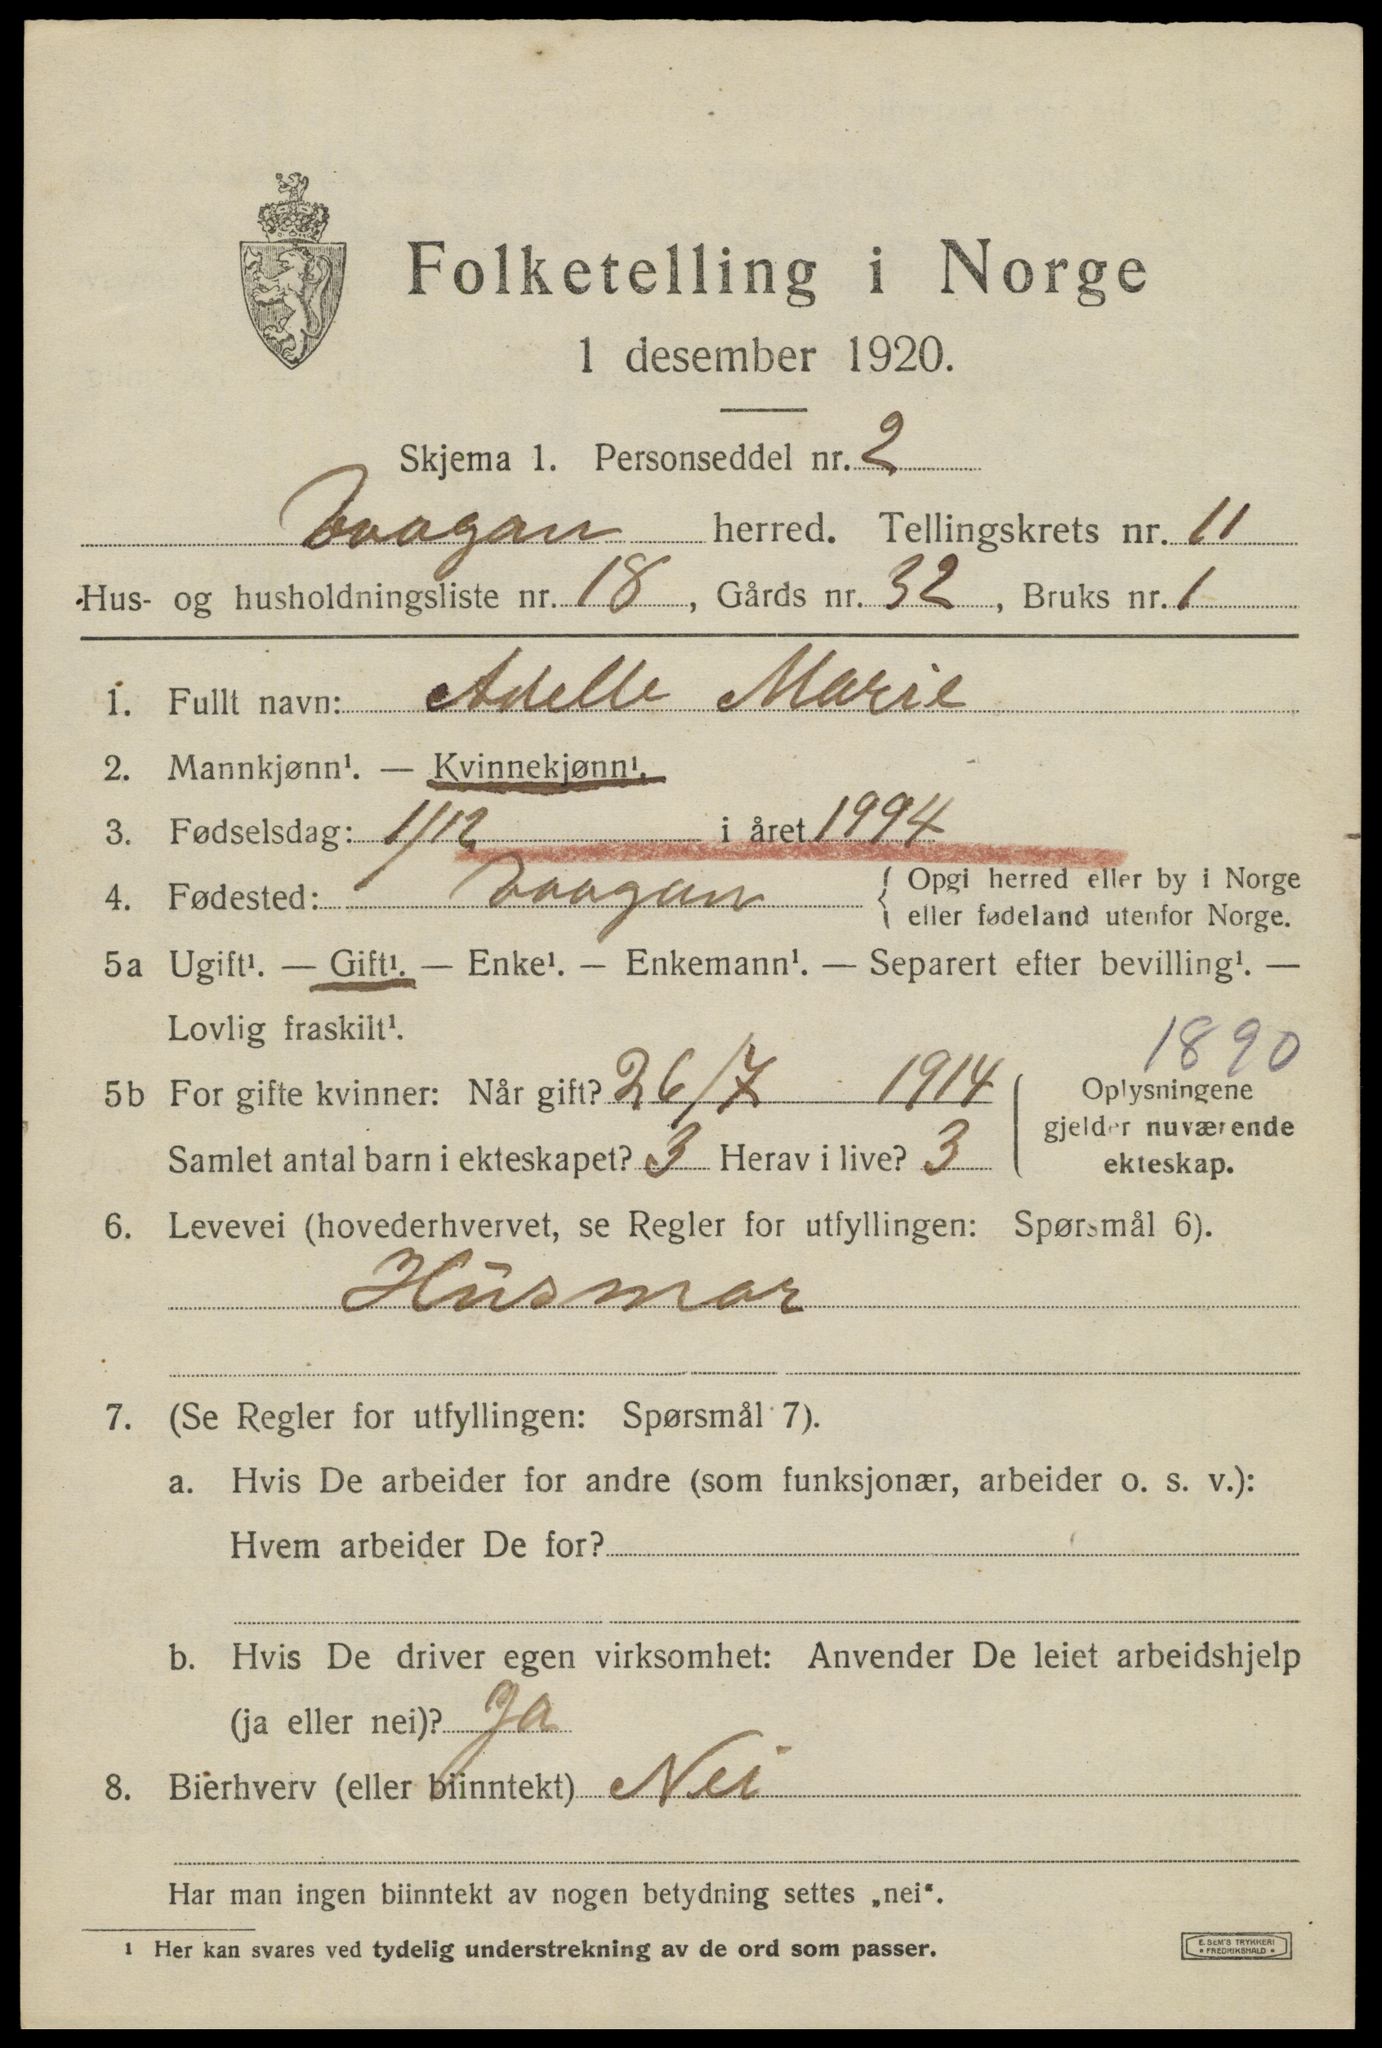 Folketelling i Norge
1 desember 1920.
Skjema 1. Personseddel nr. 2
Vaagan herred. Tellingskrets nr. 11
Hus- og husholdningsliste nr. 18, Gårds nr. 32, Bruks nr. 1
1. Fullt navn: Adelle Marie
2. Mannkjønn¹. — Kvinnekjønn¹.
3. Fødselsdag: 1/12 i året 1994
4. Fødested: Vaagan { Opgi herred eller by i Norge
eller fødeland utenfor Norge.
5a Ugift¹. — Gift¹. — Enke¹. — Enkemann¹. — Separert efter bevilling¹. —
Lovlig fraskilt¹.
1890
5b For gifte kvinner: Når gift? 26/7 1914
Samlet antal barn i ekteskapet? 3 Herav i live? 3
Oplysningene
gjelder nuværende
ekteskap.
6. Levevei (hovederhvervet, se Regler for utfyllingen: Spørsmål 6).
Husmor
7. (Se Regler for utfyllingen: Spørsmål 7).
a. Hvis De arbeider for andre (som funksjonær, arbeider o. s. v.):
Hvem arbeider De for?
b. Hvis De driver egen virksomhet: Anvender De leiet arbeidshjelp
(ja eller nei)? Ja
8. Bierhverv (eller biinntekt) Nei
Har man ingen biinntekt av nogen betydning settes „nei“.
¹ Her kan svares ved tydelig understrekning av de ord som passer.
E. SEM'S TRYKKERI
• FREDRIKSHALD •